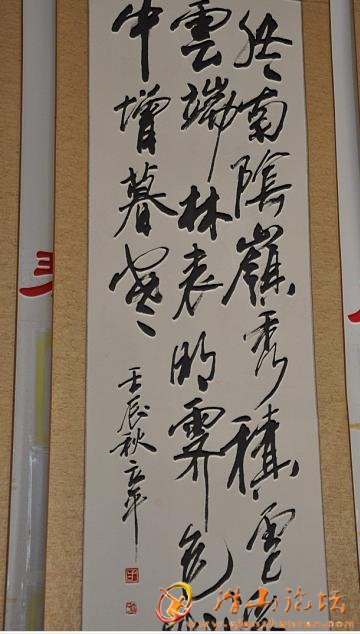 終南陰嶺秀積雪
雲端林表明霽色
中增暮寒
壬辰秋
潜山论坛